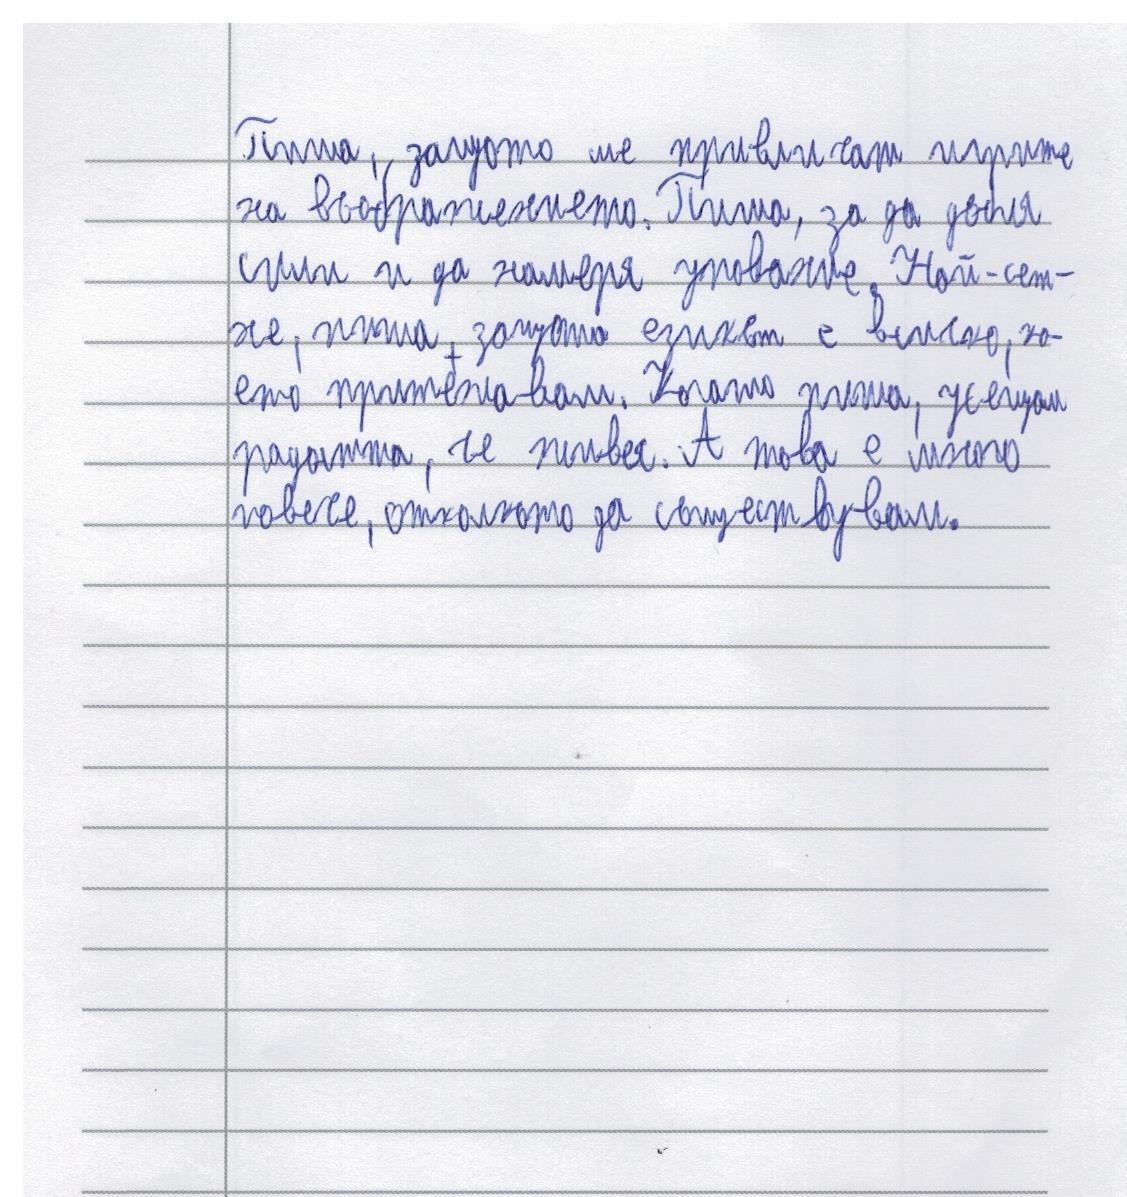 Пиша, защото ме привличат игрите
на въображението. Пиша, за да добия
сили и да намеря упование. Най-сет-
не, пиша, защото езикът е всичко, ко-
ето притежавам. Когато пиша, усещам
радостта, че живея. А това е много
повече, отколкото да съществувам.